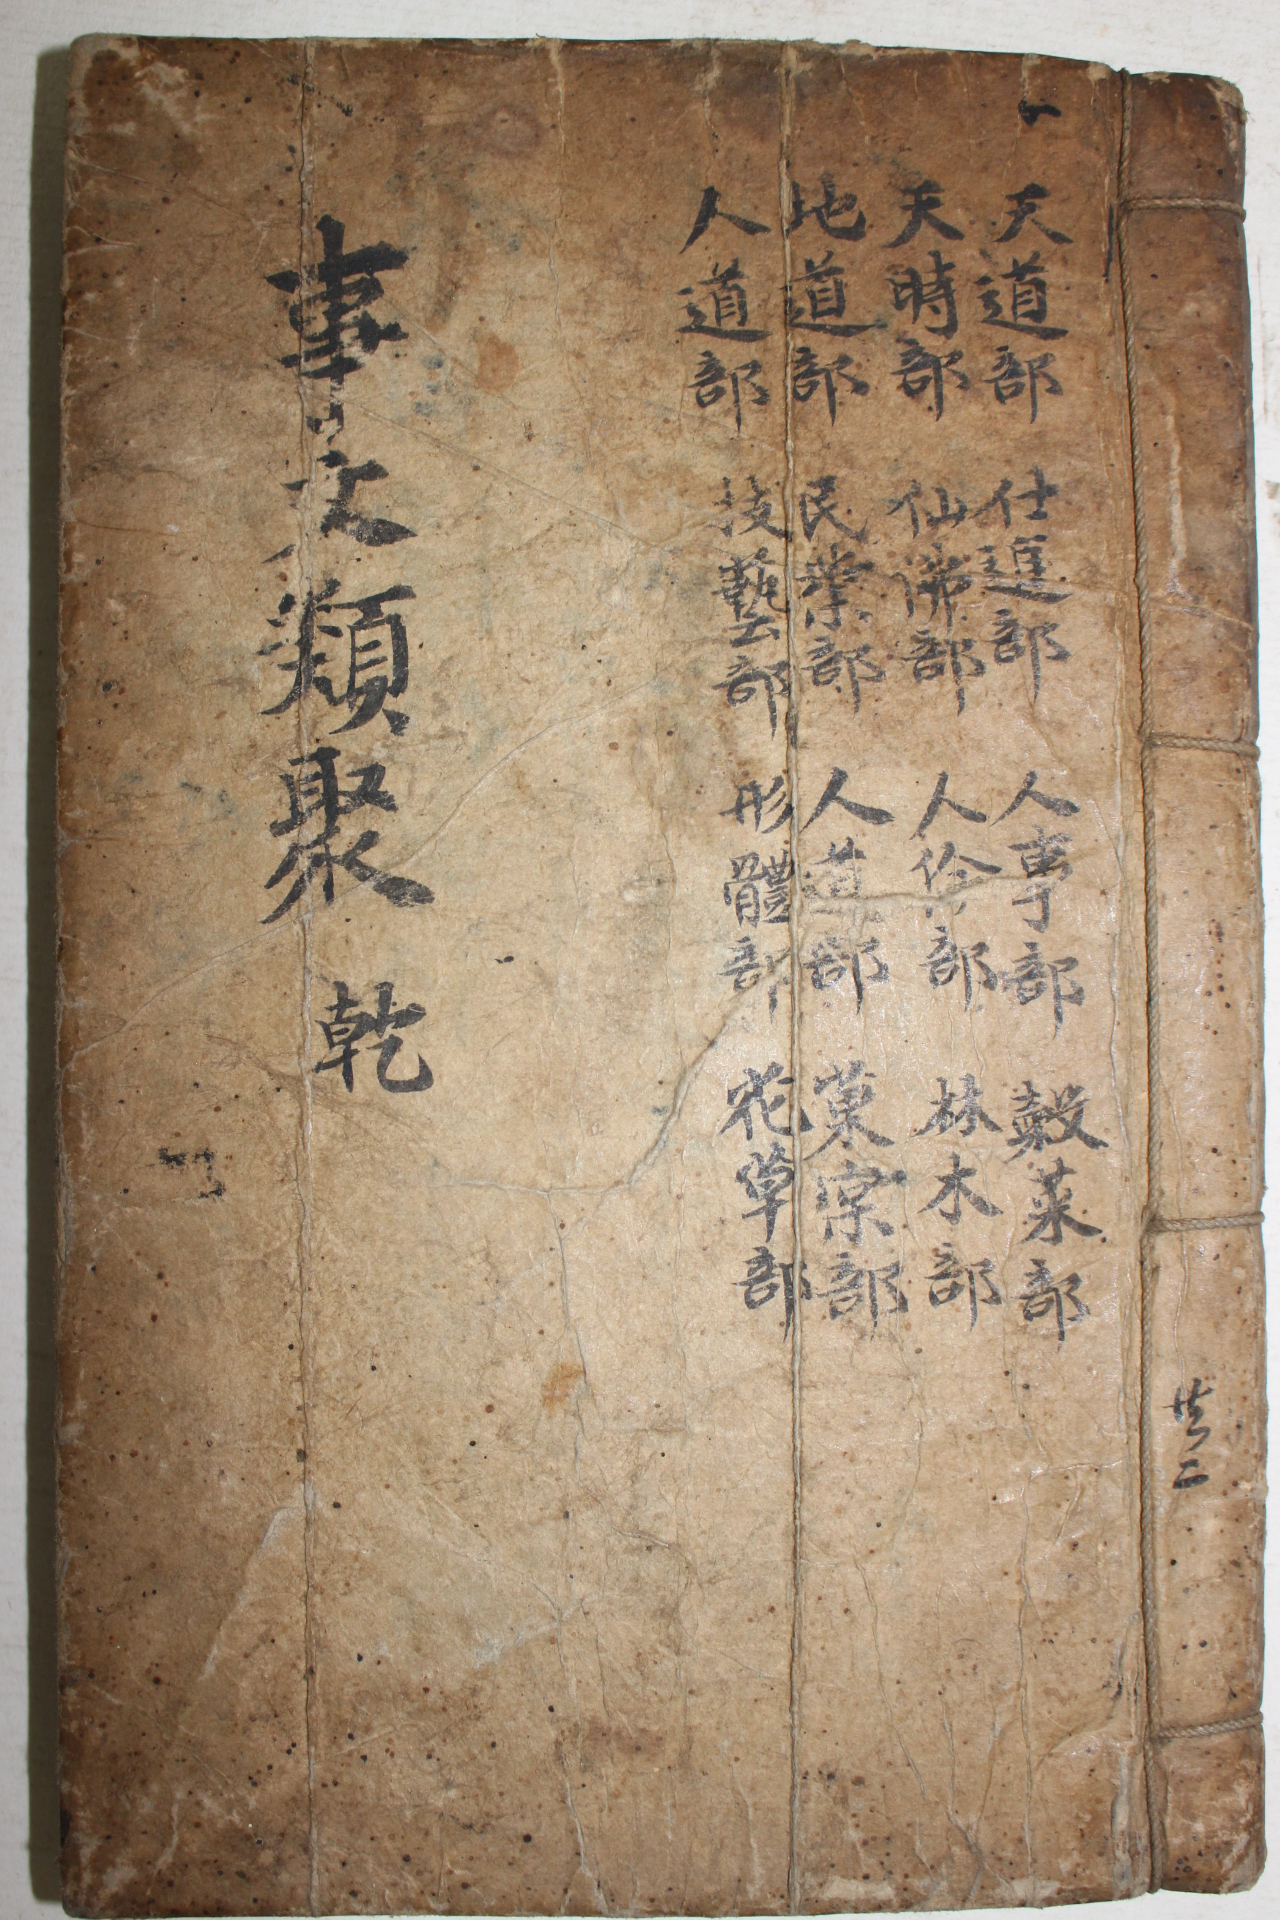 天道部 仕進部 人事部 穀菜部
天時部 仙佛部 人倫部 林木部
地道部 民業部 人部 菓宲部
人道部 技藝部 形體部 花草部
事文類聚 乾
共二